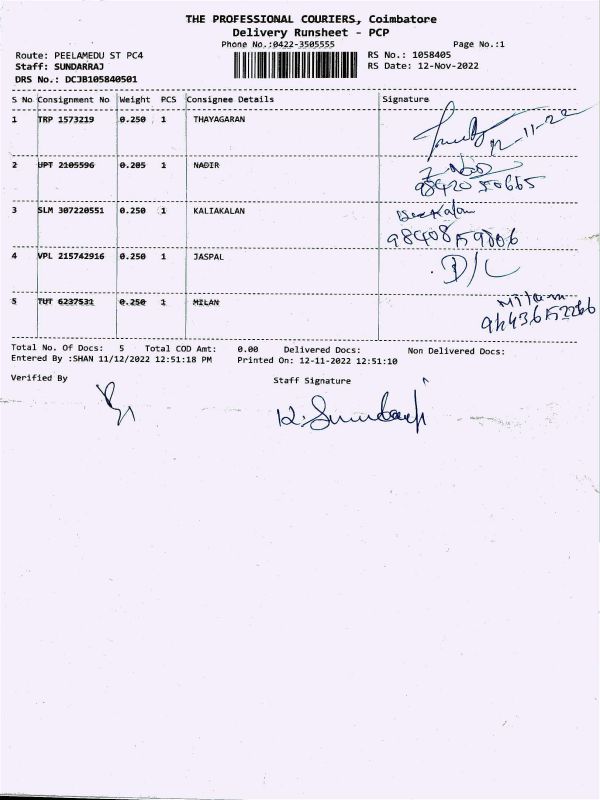 THE PROFESSIONAL COURIERS, Coimbatore
Delivery Runsheet - PCP
Phone No.:0422-3505555 Page No.:1
Route: PEELAMEDU ST PC4 RS No.: 1058405
Staff: SUNDARRAJ RS Date: 12-Nov-2022
DRS No.: DCJB105840501
S No Consignment No Weight PCS Consignee Details Signature
1 TRP 1573219 0.250 1 THAYAGARAN 12-11-22
2 UPT 2105596 0.205 1 NADIR
3 SLM 307220551 0.250 1 KALIAKALAN
4 VPL 215742916 0.250 1 JASPAL D/C
5 TUT 6237531 0.250 1 MILAN
Total No. Of Docs: 5 Total COD Amt: 0.00 Delivered Docs: Non Delivered Docs:
Entered By :SHAN 11/12/2022 12:51:18 PM Printed On: 12-11-2022 12:51:10
Verified By Staff Signature